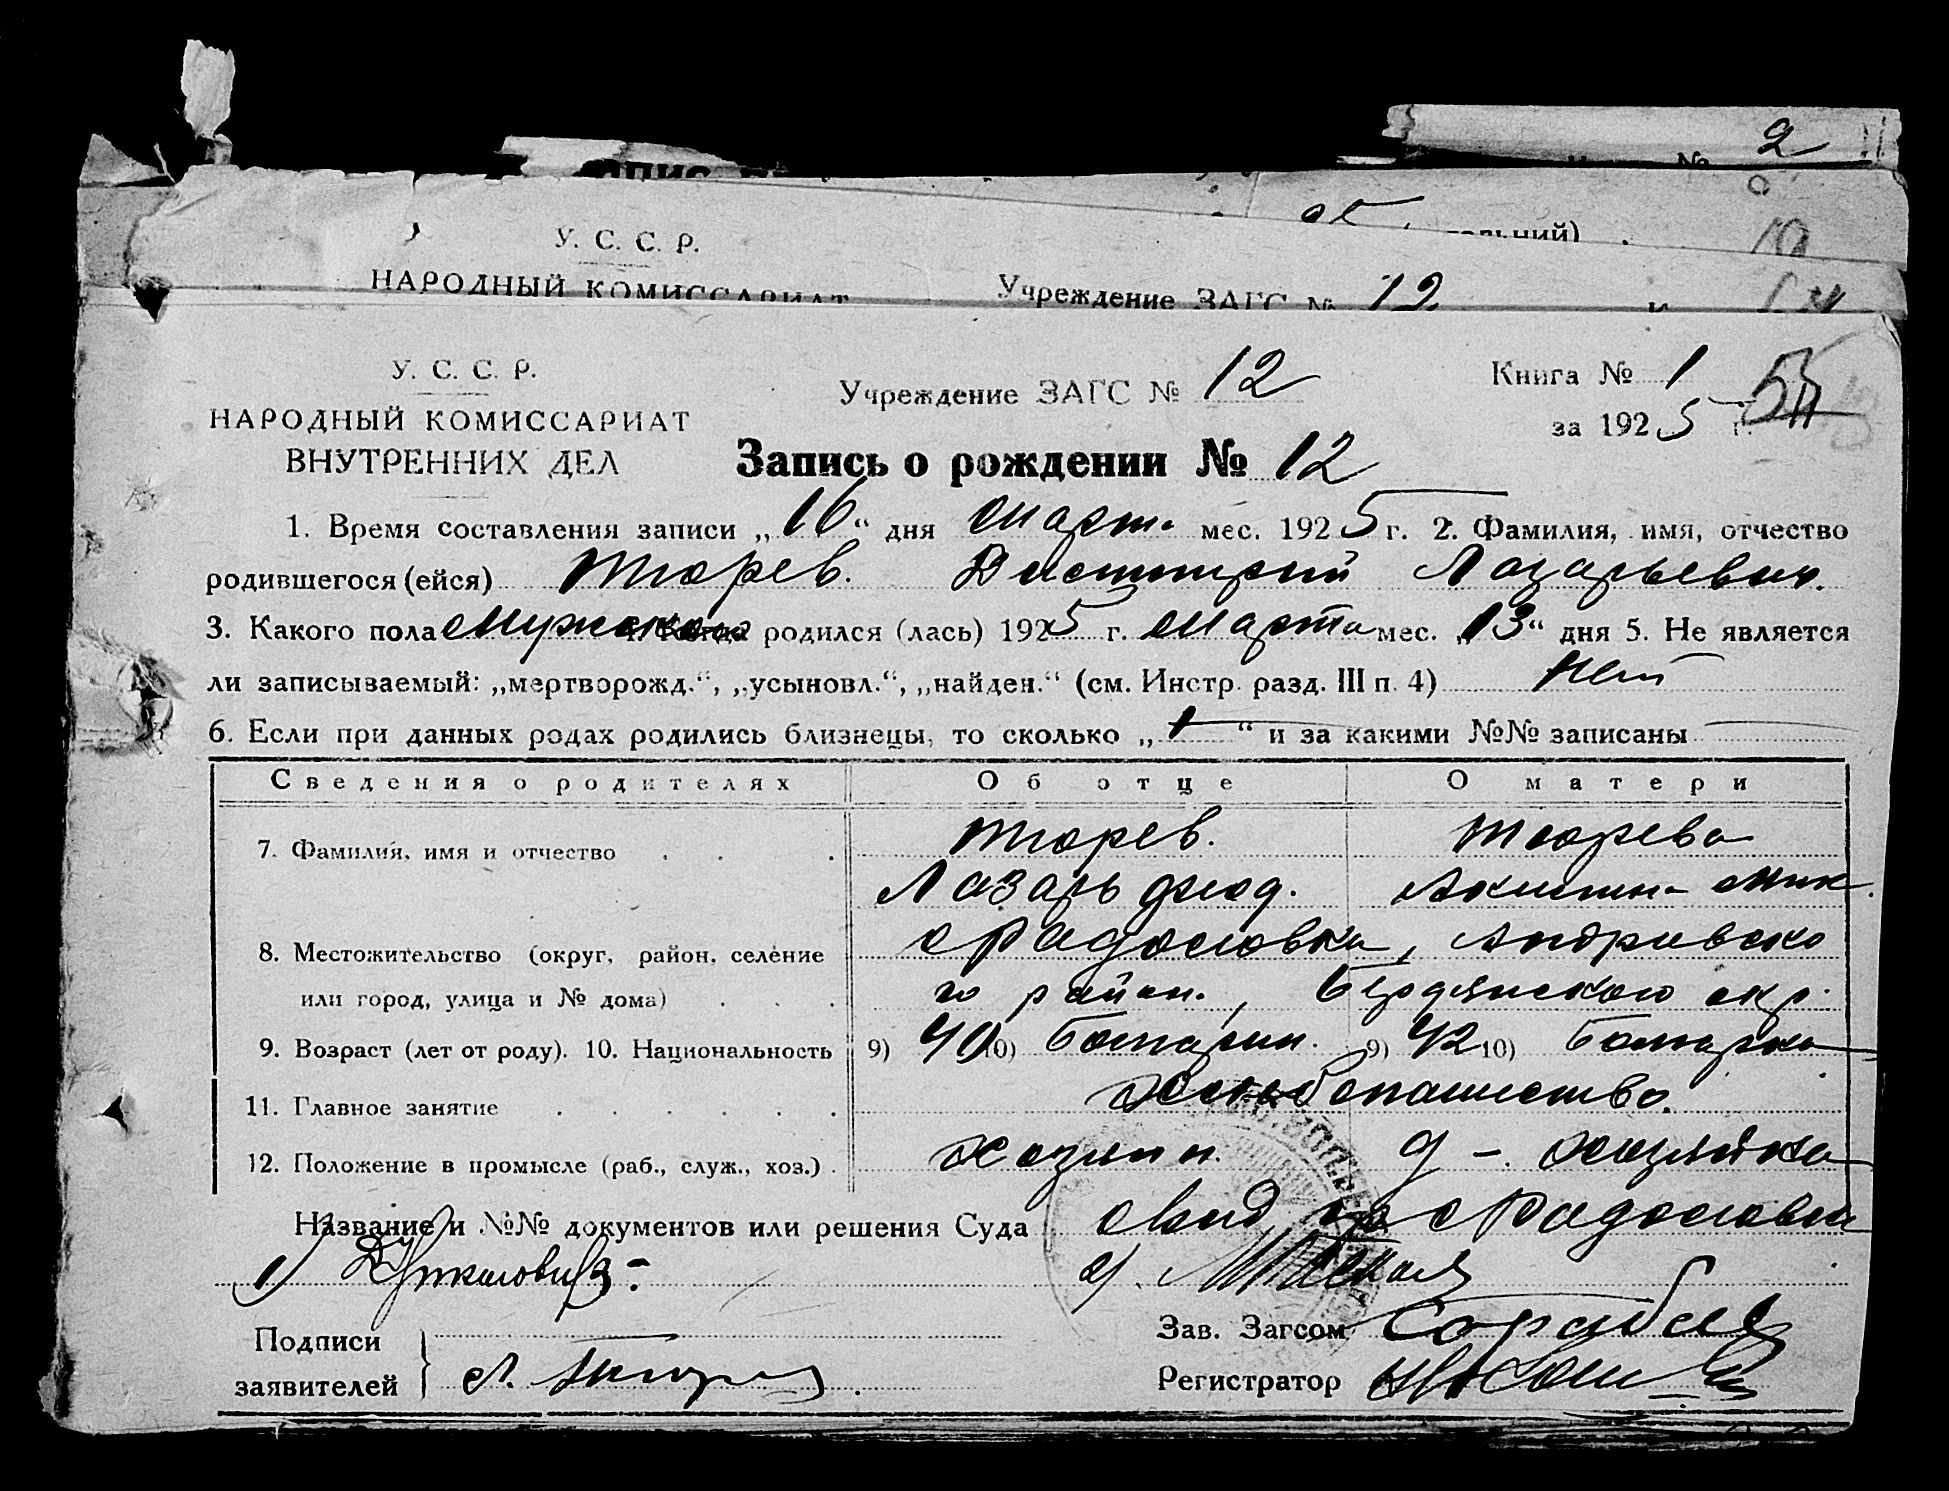 2
У. С. С. Р.
НАРОДНЫЙ КОМИССАРИАТ
Учреждение ЗАГС № 12
У. С. С. Р.
НАРОДНЫЙ КОМИССАРИАТ
ВНУТРЕННИХ ДЕЛ
Учреждение ЗАГС № 12
Книга № 1
за 1925 г.
Запись о рождении № 12
1. Время составления записи „16“ дня март. мес. 1925 г. 2. Фамилия, имя, отчество
родившегося (ейся) Тюрев. Дмитрий Лазарьевич.
3. Какого пола мужского родился (лась) 1925 г. марта мес. „13“ дня 5. Не является
ли записываемый: „мертворожд.“, „усыновл.“, „найден.“ (см. Инстр. разд. III п. 4) нет
6. Если при данных родах родились близнецы, то сколько „ “ и за какими №№ записаны
Сведения о родителях Об отце О матери
7. Фамилия, имя и отчество Тюрев. Тюрева
Лазарь Мик.
8. Местожительство (округ, район, селение с Радоловка, Андривско
или город, улица и № дома) го район., Бердянского окр.
9. Возраст (лет от роду). 10. Национальность 9) 40 10) Болгарин. 9) 42 10) Болгарка
11. Главное занятие Хлебопашество.
12. Положение в промысле (раб., служ., хоз.) хозяин д - хозяйка
Название и №№ документов или решения Суда
Подписи
заявителей
Зав. Загсом
Регистратор